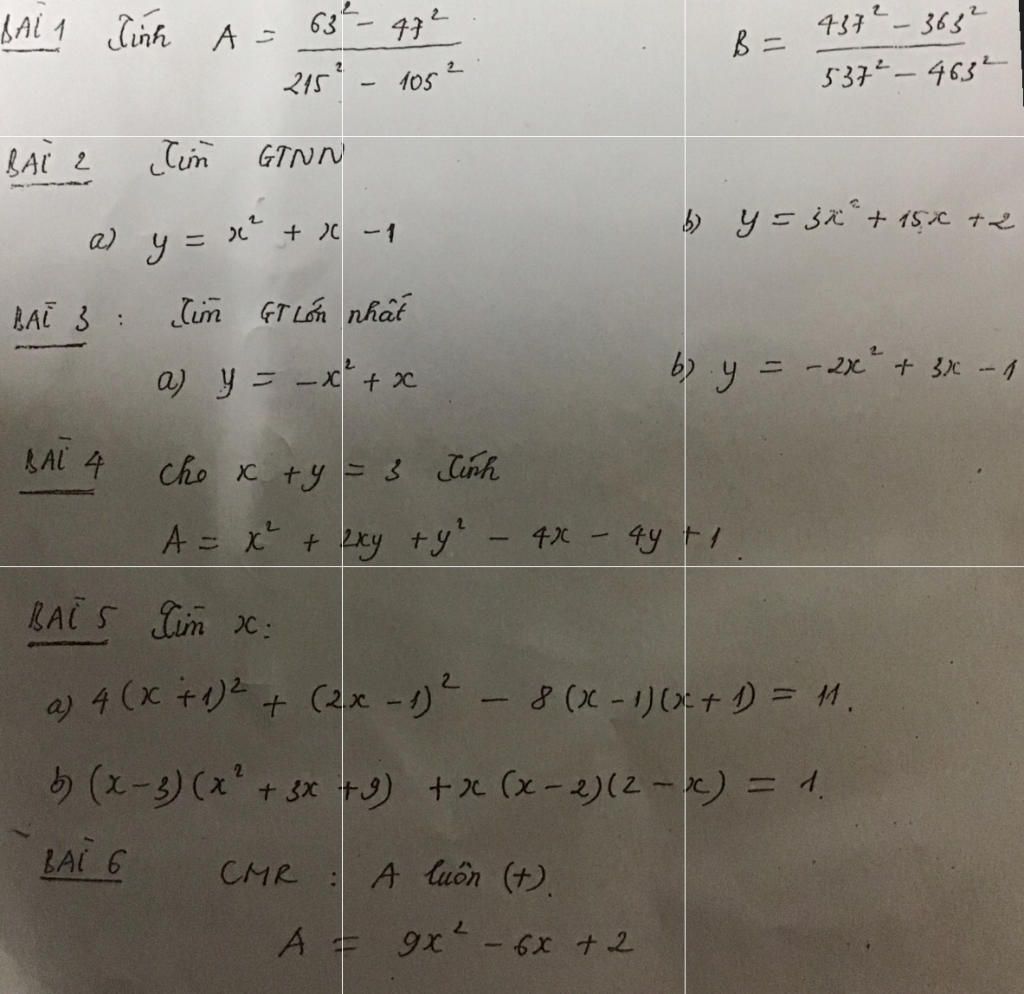 BÀI 1 Tính A = (63² - 47²) / (215² - 105²) B = (437² - 363²) / (537² - 463²)
BÀI 2 Tìm GTNN
a) y = x² + x - 1 b) y = 3x² + 15x + 2
BÀI 3 : Tìm GT Lớn nhất
a) y = -x² + x b) y = -2x² + 3x - 1
BÀI 4 Cho x + y = 3 Tính
A = x² + 2xy + y² - 4x - 4y + 1.
BÀI 5 Tìm x:
a) 4(x + 1)² + (2x - 1)² - 8(x - 1)(x + 1) = 11.
b) (x - 3)(x² + 3x + 9) + x(x - 2)(2 - x) = 1.
BÀI 6 CMR : A luôn (+).
A = 9x² - 6x + 2